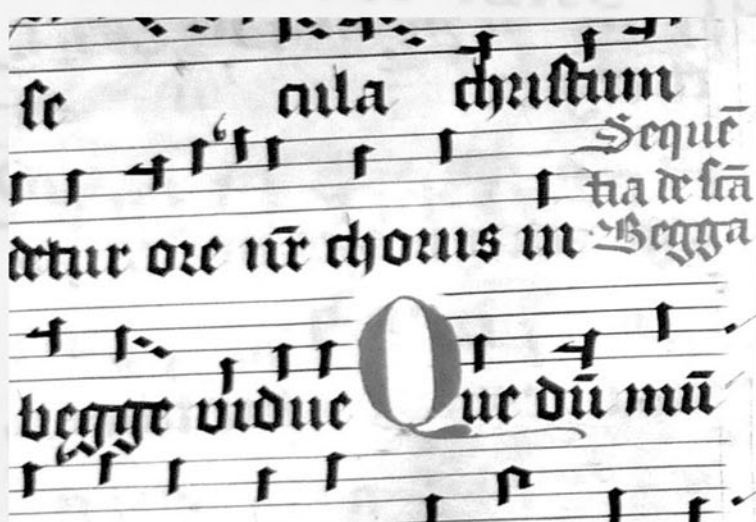 se cula christum
Sequē
tia de scā
detur ore nr̄e chorus in Begga
begge vidue Que dū mū